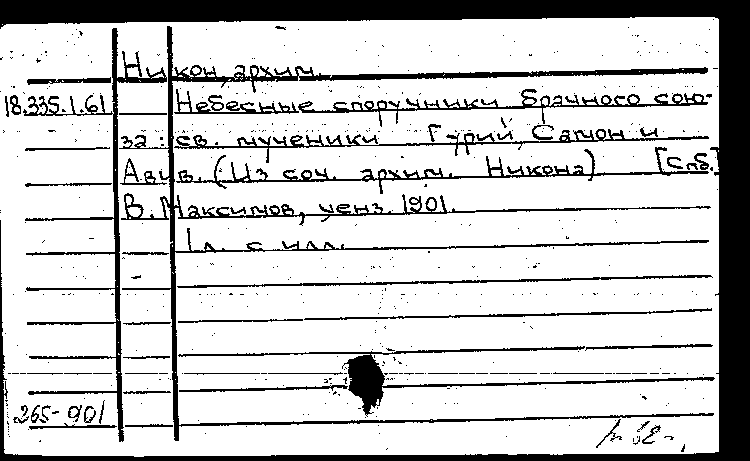 Никон, архим.
18.335.1.61 Небесные споручники брачного сою-
за: св. мученики Гурий, Самон и
Авив. (Из соч. архим. Никона) [Спб.]
В. Максимов, ценз. 1901.
1 л. с илл.
265-901